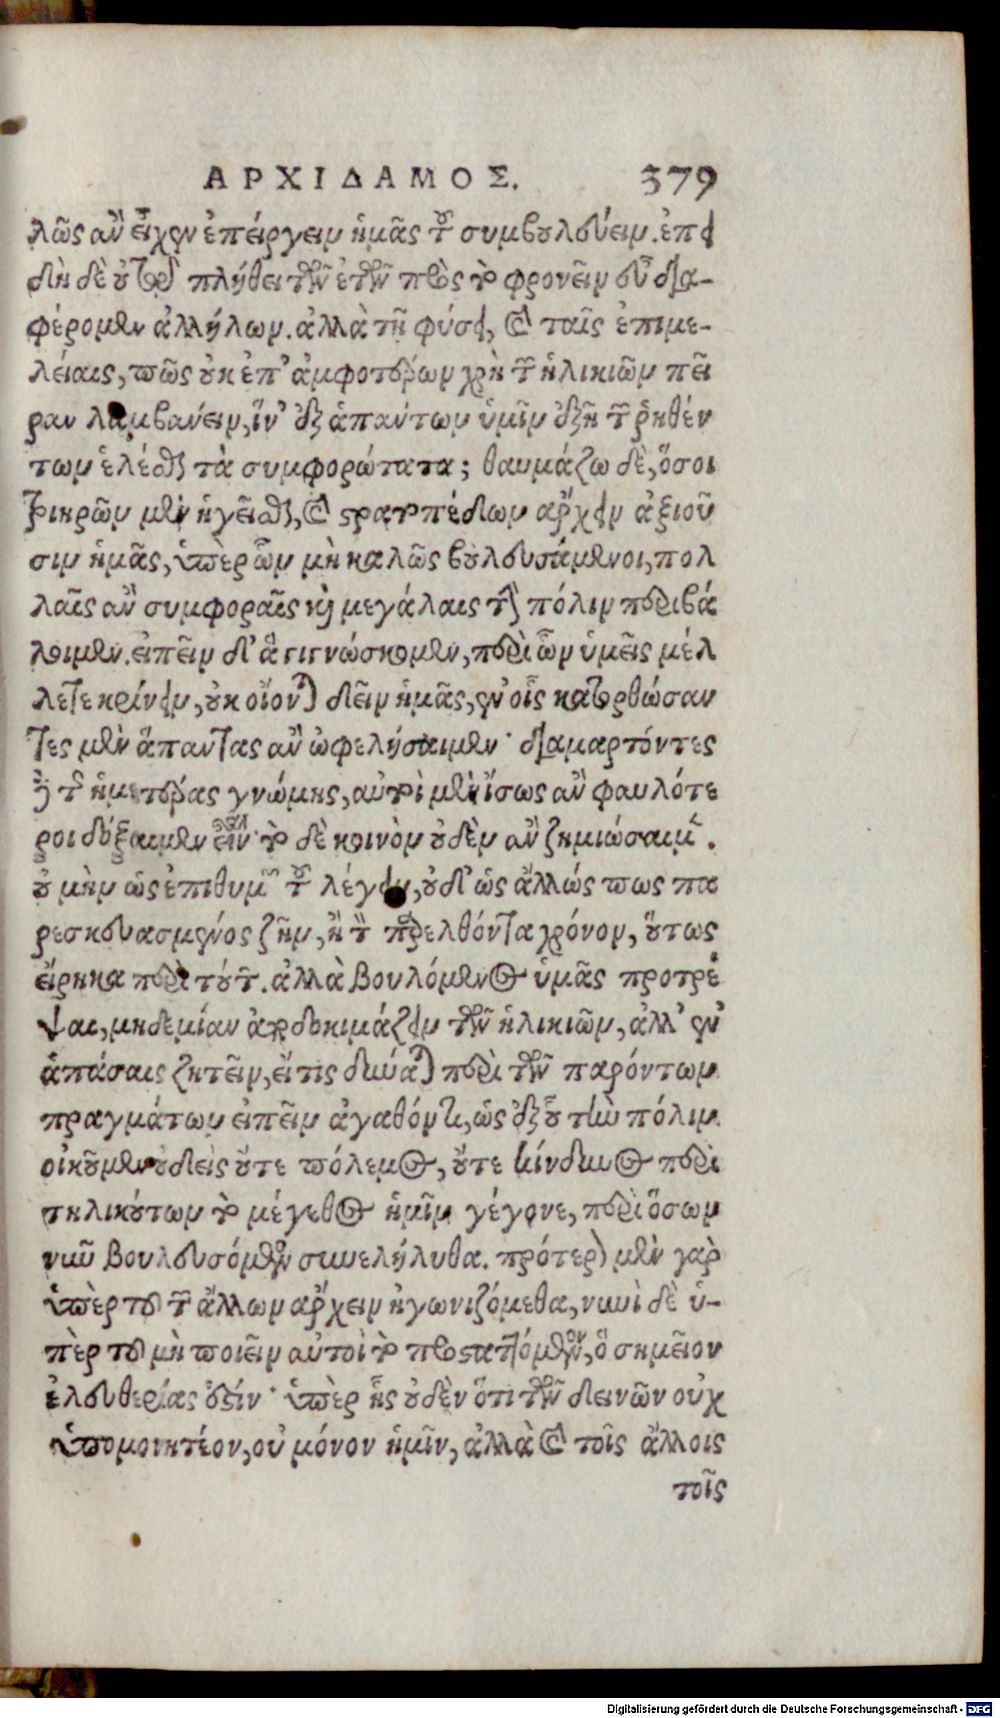 ΑΡΧΙΔΑΜΟΣ. 379
λῶς ἂν εἶχεν ἐπείργειν ἡμᾶς τοῦ συμβουλεύειν. ἐπει
δὴ δὲ οὐ τῷ πλήθει τῶν ἐτῶν πρὸς τὸ φρονεῖν εὖ δια-
φέρομεν ἀλλήλων. ἀλλὰ τῇ φύσει, καὶ ταῖς ἐπιμε-
λείαις, πῶς οὐκ ἐπ' ἀμφοτέρων χρὴ τῶν ἡλικιῶν πεῖ
ραν λαμβάνειν, ἵν' ἐξ ἁπάντων ὑμῖν ἐξῇ τῶν ῥηθέν
των ἑλέσθαι τὰ συμφορώτατα; θαυμάζω δὲ, ὅσοι
τριηρῶν μὲν ἡγεῖσθαι, καὶ στρατοπέδων ἄρχειν ἀξιοῦ
σιν ἡμᾶς, ὑπὲρ ὧν μὴ καλῶς βουλευσάμενοι, πολ
λαῖς ἂν συμφοραῖς καὶ μεγάλαις τὴν πόλιν περιβά
λοιμεν. εἰπεῖν δ' ἃ γιγνώσκομεν, περὶ ὧν ὑμεῖς μέλ
λετε κρίνειν, οὐκ οἴονται δεῖν ἡμᾶς, ἐν οἷς κατορθώσαν
τες μὲν ἅπαντας ἂν ὠφελήσαιμεν· διαμαρτόντες
δὲ τῆς ἡμετέρας γνώμης, αὐτοὶ μὲν ἴσως ἂν φαυλότε
ροι δόξαιμεν εἶναι· τὸ δὲ κοινὸν οὐδὲν ἂν ζημιώσαιμεν.
οὐ μὴν ὡς ἐπιθυμῶν τοῦ λέγειν, οὐδ' ὡς ἄλλως πως πα
ρεσκευασμένος ζῆν, ἢ τὸν παρελθόντα χρόνον, οὕτως
εἴρηκα περὶ τούτων. ἀλλὰ βουλόμενος ὑμᾶς προτρέ
ψαι, μηδεμίαν ἀποδοκιμάζειν τῶν ἡλικιῶν, ἀλλ' ἐν
ἁπάσαις ζητεῖν, εἴ τις δύναται περὶ τῶν παρόντων
πραγμάτων εἰπεῖν ἀγαθόν τι, ὡς ἐξ οὗ τὴν πόλιν
οἰκοῦμεν οὐδεὶς οὔτε πόλεμος, οὔτε κίνδυνος περὶ
τηλικούτων τὸ μέγεθος ἡμῖν γέγονε, περὶ ὅσων
νῦν βουλευσόμενοι συνελήλυθα. πρότερον μὲν γὰρ
ὑπὲρ τοῦ τῶν ἄλλων ἄρχειν ἠγωνιζόμεθα, νυνὶ δὲ ὑ-
πὲρ τοῦ μὴ ποιεῖν αὐτοὶ τὸ προσταττόμενον, ὃ σημεῖον
ἐλευθερίας ἐστίν· ὑπὲρ ἧς οὐδὲν ὅτι τῶν δεινῶν οὐχ
ὑπομονητέον, οὐ μόνον ἡμῖν, ἀλλὰ καὶ τοῖς ἄλλοις
τοῖς
Digitalisierung gefördert durch die Deutsche Forschungsgemeinschaft - DFG